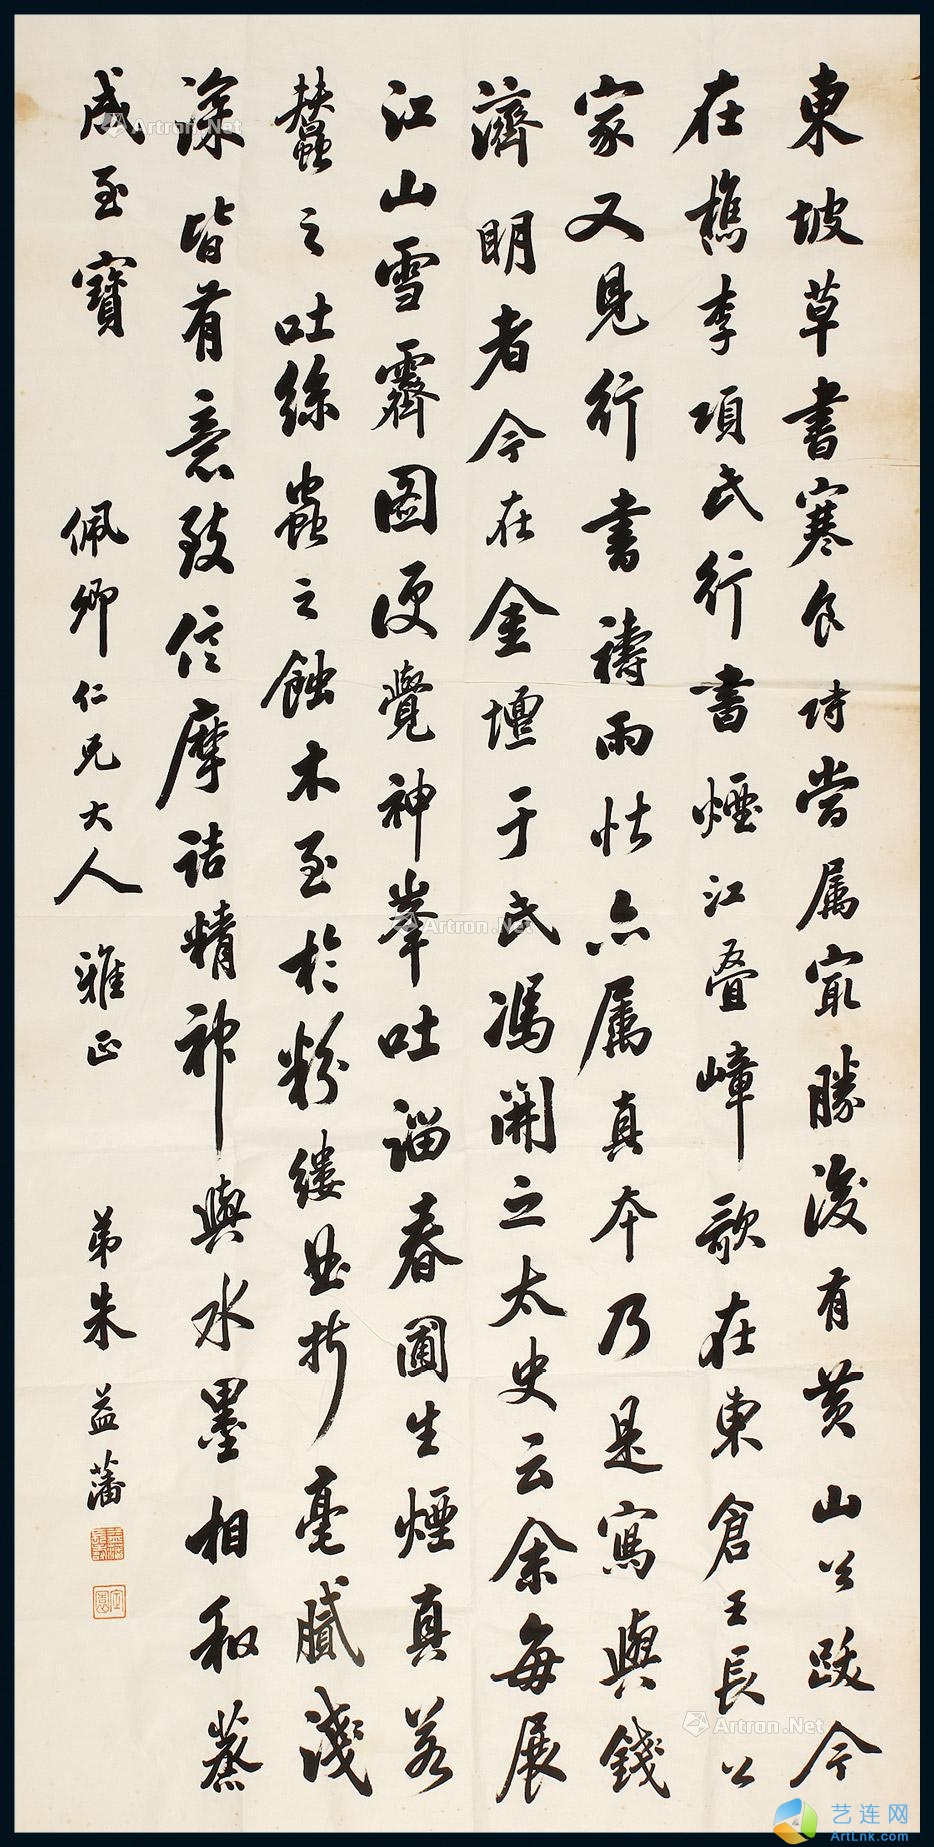 東坡草書寒食詩當属㝡勝後有黄山谷跋今
在檇李項氏行書煙江叠嶂歌在東倉王長公
家又見行書禱雨帖亦属真本乃是寫與錢
濟明者今在金壇于氏馮開之太史云余每展
江山雪霽圖便覺神峯吐溜春圃生煙真若
蠶之吐絲蟲之蝕木至於粉縷曲折毫膩淺
深皆有意致信摩詰精神與水墨相和蒸
成至寶
佩卿仁兄大人 雅正
弟朱益藩
Artron.Net
Artron.Net
Artron.Net
艺连网
ArtLnk.com